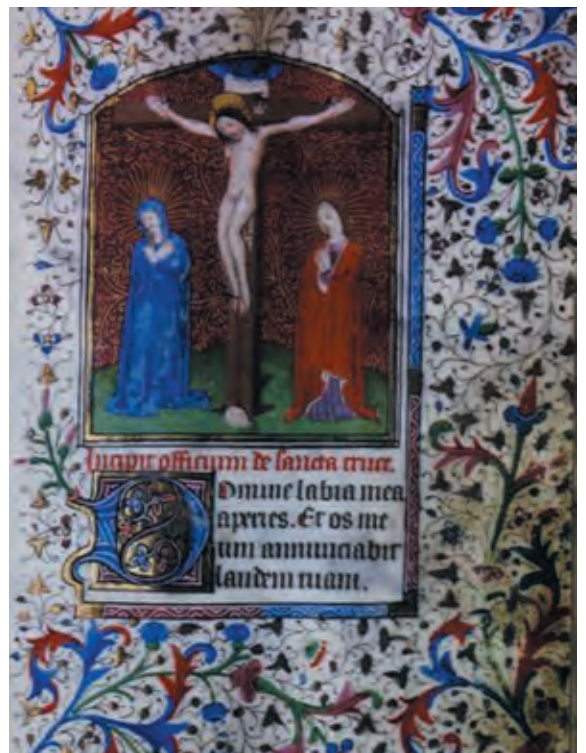 Incipit officium de sancta cruce.
Domine labia mea
aperies. Et os me
um annunciabit
laudem tuam.